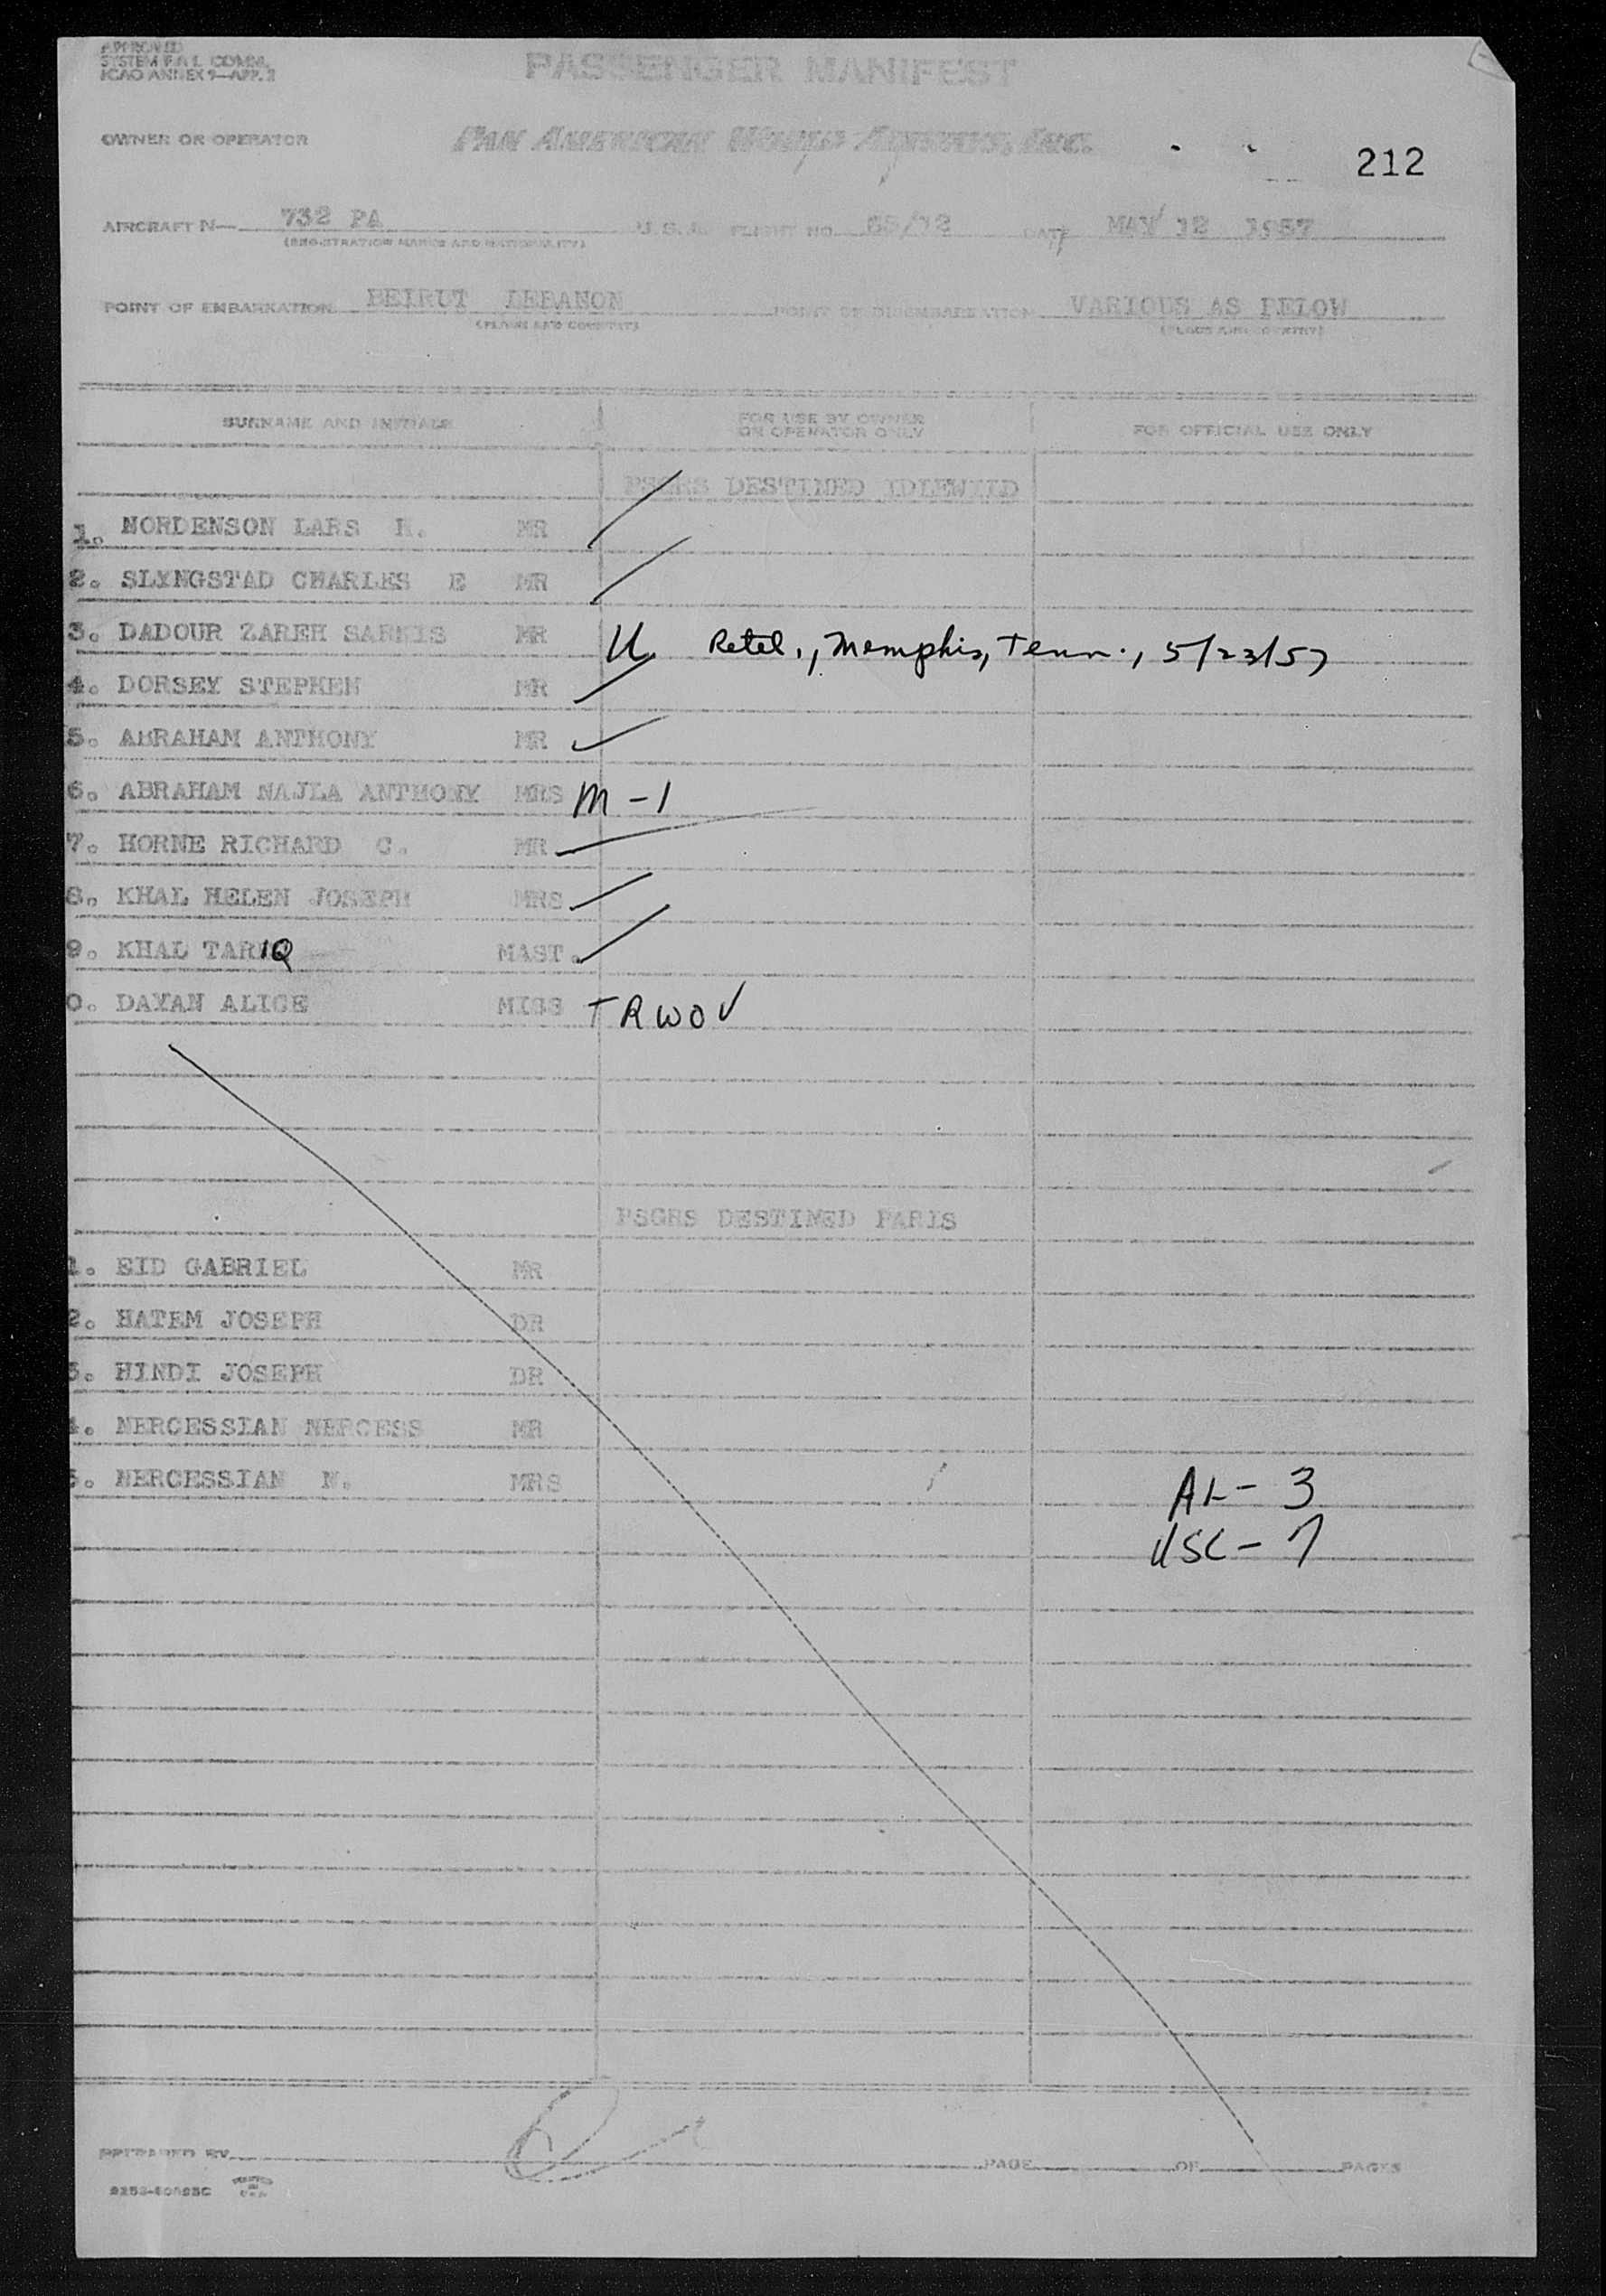 APPROVED
SYSTEM F.A.L. COMM.
ICAO ANNEX 9—APP. 2
PASSENGER MANIFEST
OWNER OR OPERATOR PAN AMERICAN WORLD AIRWAYS, INC.
212
AIRCRAFT N— 732 PA U.S.A. FLIGHT NO. 65/12 DATE MAY 12 1957
(REGISTRATION MARKS AND NATIONALITY)
POINT OF EMBARKATION BEIRUT LEBANON POINT OF DISEMBARKATION VARIOUS AS BELOW
(PLACE AND COUNTRY) (PLACE AND COUNTRY)
SURNAME AND INITIALS FOR USE BY OWNER OR OPERATOR ONLY FOR OFFICIAL USE ONLY
PSGRS DESTINED IDLEWILD
1. NORDENSON LARS MR
2. SLYNGSTAD CHARLES E MR
3. DADOUR ZAREH SARKIS MR Retel., Memphis, Tenn., 5/23/57
4. DORSEY STEPHEN MR
5. ABRAHAM ANTHONY MR
6. ABRAHAM NAJLA ANTHONY MRS M-1
7. HORNE RICHARD C. MR
8. KHAL HELEN JOSEPH MRS
9. KHAL TARIQ MAST.
0. DAYAN ALICE MISS TRWOV
PSGRS DESTINED PARIS
1. EID GABRIEL MR
2. HATEM JOSEPH DR
3. HINDI JOSEPH DR
4. NERCESSIAN NERCESS MR
5. NERCESSIAN N. MRS
AL- 3
USC- 7
PREPARED BY PAGE OF PAGES